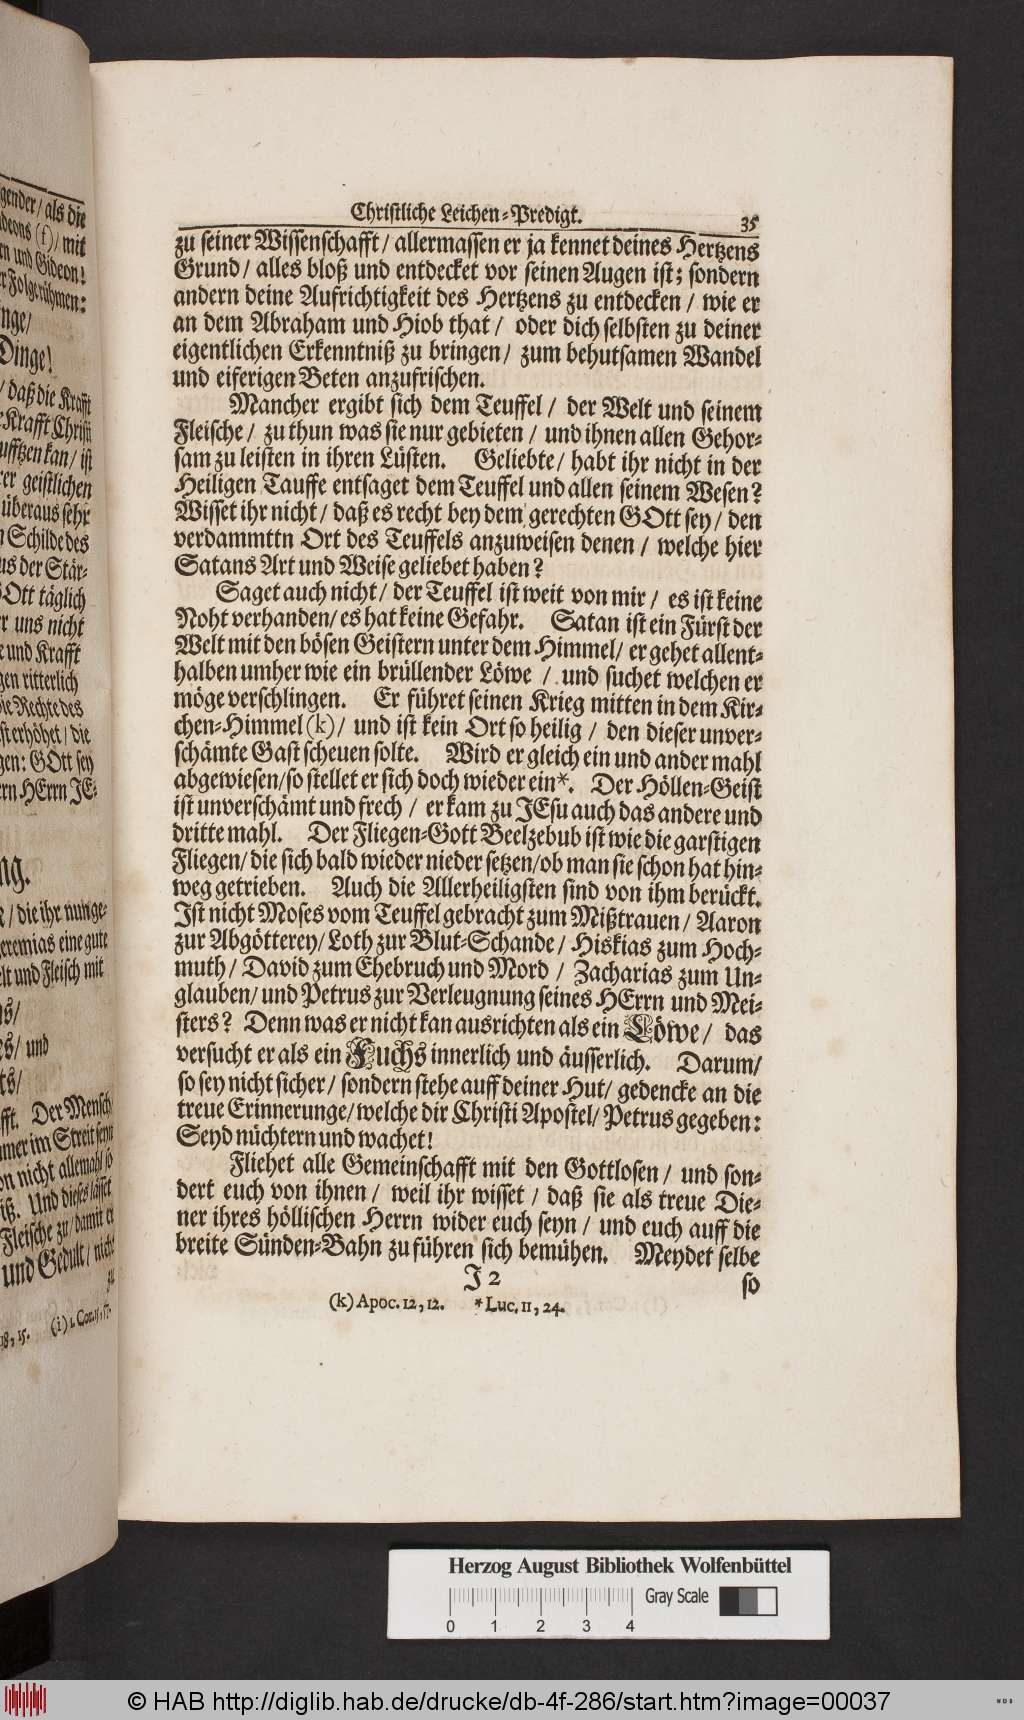 gender/ als die
deons (f)/ mit
en und Gideon!
er Folge rühmen:
nge/
Dinge!
/ daß die Krafft
Krafft Christi
ufftzen kan/ ist
rer geistlichen
überaus sehr
n Schilde des
us der Stär-
GOtt täglich
r uns nicht
e und Krafft
gen ritterlich
die Rechte des
st erhöhet/ die
gen: GOtt sey
rrn HErrn JE-
ng.
/ die ihr nunge-
eremias eine gute
elt und Fleisch mit
s/
es/ und
ts/
fft. Der Mensch
mer im Streit seyn
on nicht allemahl so
iß. Und dieses lässet
Fleische zu/ damit er
und Gedult/ nicht
zu
18, 15. (i) 1. Cor.
Christliche Leichen-Predigt. 35
zu seiner Wissenschafft/ allermassen er ja kennet deines Hertzens
Grund/ alles bloß und entdecket vor seinen Augen ist; sondern
andern deine Aufrichtigkeit des Hertzens zu entdecken/ wie er
an dem Abraham und Hiob that/ oder dich selbsten zu deiner
eigentlichen Erkenntniß zu bringen/ zum behutsamen Wandel
und eiferigen Beten anzufrischen.
Mancher ergibt sich dem Teuffel/ der Welt und seinem
Fleische/ zu thun was sie nur gebieten/ und ihnen allen Gehor-
sam zu leisten in ihren Lüsten. Geliebte/ habt ihr nicht in der
Heiligen Tauffe entsaget dem Teuffel und allen seinem Wesen?
Wisset ihr nicht/ daß es recht bey dem gerechten GOtt sey/ den
verdammttn Ort des Teuffels anzuweisen denen/ welche hier
Satans Art und Weise geliebet haben?
Saget auch nicht/ der Teuffel ist weit von mir/ es ist keine
Noht verhanden/ es hat keine Gefahr. Satan ist ein Fürst der
Welt mit den bösen Geistern unter dem Himmel/ er gehet allent-
halben umher wie ein brüllender Löwe/ und suchet welchen er
möge verschlingen. Er führet seinen Krieg mitten in dem Kir-
chen-Himmel (k)/ und ist kein Ort so heilig/ den dieser unver-
schämte Gast scheuen solte. Wird er gleich ein und ander mahl
abgewiesen/ so stellet er sich doch wieder ein*. Der Höllen-Geist
ist unverschämt und frech/ er kam zu JEsu auch das andere und
dritte mahl. Der Fliegen-Gott Beelzebub ist wie die garstigen
Fliegen/ die sich bald wieder nieder setzen/ ob man sie schon hat hin-
weg getrieben. Auch die Allerheiligsten sind von ihm berückt.
Ist nicht Moses vom Teuffel gebracht zum Mißtrauen/ Aaron
zur Abgötterey/ Loth zur Blut-Schande/ Hiskias zum Hoch-
muth/ David zum Ehebruch und Mord/ Zacharias zum Un-
glauben/ und Petrus zur Verleugnung seines HErrn und Mei-
sters? Denn was er nicht kan ausrichten als ein Löwe/ das
versucht er als ein Fuchs innerlich und äusserlich. Darum/
so sey nicht sicher/ sondern stehe auff deiner Hut/ gedencke an die
treue Erinnerunge/ welche dir Christi Apostel/ Petrus gegeben:
Seyd nüchtern und wachet!
Fliehet alle Gemeinschafft mit den Gottlosen/ und son-
dert euch von ihnen/ weil ihr wisset/ daß sie als treue Die-
ner ihres höllischen Herrn wider euch seyn/ und euch auff die
breite Sünden-Bahn zu führen sich bemühen. Meydet selbe
J 2 so
(k) Apoc. 12, 12. * Luc. 11, 24.
Herzog August Bibliothek Wolfenbüttel
Gray Scale
0 1 2 3 4
© HAB http://diglib.hab.de/drucke/db-4f-286/start.htm?image=00037